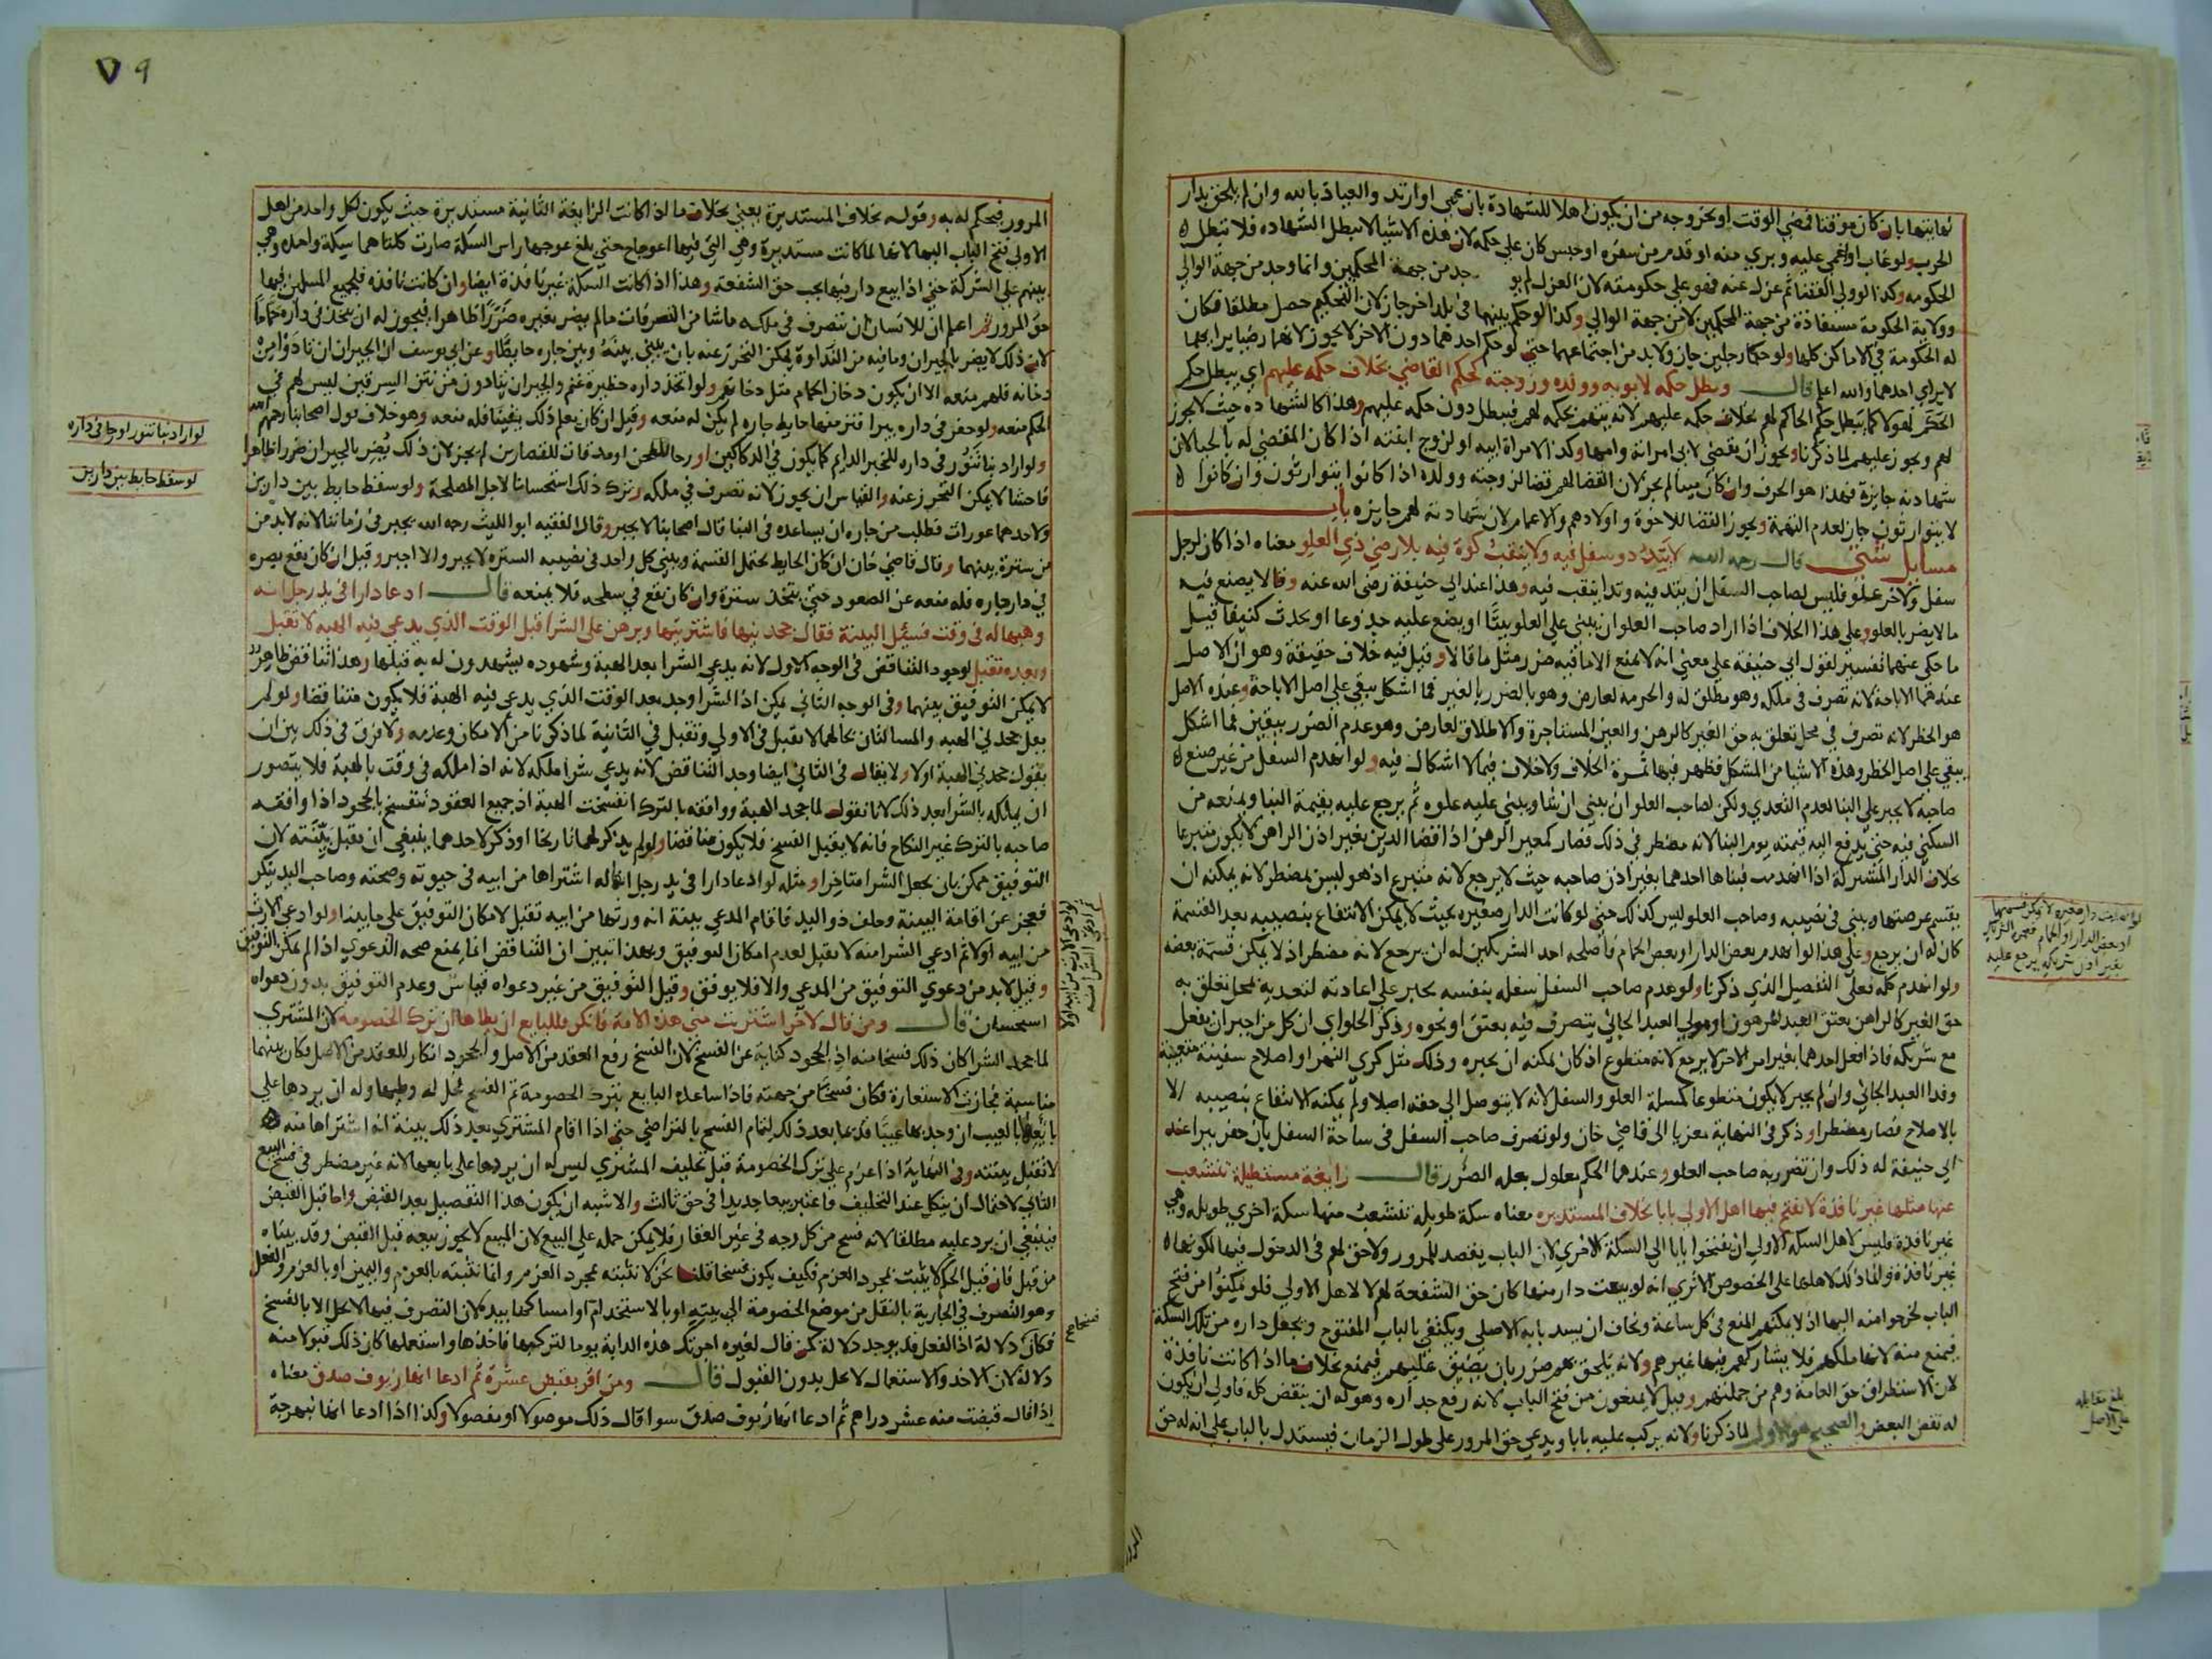 نهايتها بان كان موقتا فمضي الوقت او بخروجه من ان يكون اهلا للشهادة بان عمي او ارتد والعياذ بالله وان لم يلحق بدار
الحرب ولو غاب او اغمي عليه وبري منه او قدم من سفره او حبس كان علي حكمه لان هذه الاشيا لا تبطل الشهاده فلا تبطل
الحكومه وكذا لو ولي القضا ثم عزل عنه فهو علي حكومته لان العزل لم يو جد من جهة المحكمين وانما وجد من جهة الوالي
وولاية الحكومة مستفادة من جهة المحكمين لا من جهة الوالي وكذا لو حكم بينهما في بلد اخر جاز لان التحكيم حصل مطلقا فكان
له الحكومة في الاماكن كلها ولو حكما رجلين جاز ولا بد من اجتماعهما حتي لو حكم احدهما دون الاخر لا يجوز لانهما رضيا برايهما
لا براي احدهما والله اعلم قال وبطل حكمه لابويه وولده وزوجته كحكم القاضي بخلاف حكمه عليهم اي يبطل حكم
الحكم لهولا كما يبطل حكم الحاكم لهم بخلاف حكمه عليهم لانه يتهم بحكمه لهم فيبطل دون حكمه عليهم وهذا كالشهادة حيث لا يجوز
لهم ويجوز عليهم لما ذكرنا ويجوز ان يقضي لابي امراته وامها وكذا لامراة ابيه او لزوج ابنته اذا كان المقضي له بالحيا لان
شهادته جايزة فهذا هو الحرف وان كان ميتا لم يجز لان القضا لهم قضا لزوجته وولده اذا كانوا يتوارثون وان كانوا
لا يتوارثون جاز لعدم التهمة ويجوز القضا للاخوة واولادهم والاعمام لان شهادته لهم جايزه باب
مسايل شتي قال رحمه الله لا يتد ذو سفل فيه ولا ينقب كوة فيه بلا رضي ذي العلو معناه اذا كان لرجل
سفل ولاخر علو فليس لصاحب السفل ان يتد فيه وتدا ينقب فيه وهذا عند ابي حنيفة رضي الله عنه وقالا يصنع فيه
ما لا يضر بالعلو وعلي هذا الخلاف اذا اراد صاحب العلو ان يبني علي العلو بيتا او يضع عليه جذوعا او يحدث كنيفا قيل
ما حكي عنهما تفسير لقول ابي حنيفة علي معني انه لا يمنع الا ما فيه ضرر مثل ما قالا وقيل فيه خلاف حقيقة وهو ان الاصل
عندهما الاباحة لانه تصرف في ملكه وهو مطلق له والحرمه لعارض وهو بالضرر بالغير فما اشكل يبقي علي اصل الاباحة وعنده الاصل
هو الحظر لانه تصرف في محل تعلق به حق الغير كالرهن والعين المستاجرة والاطلاق لعارض وهو عدم الضرر بيقين فما اشكل
يبقي علي اصل الحظر وهذه الاشيا من المشكل فظهر فيها ثمرة الخلاف ولا خلاف فيما لا اشكال فيه ولو انهدم السفل من غير صنع
صاحبه لا يجبر علي البنا لعدم التعدي ولكن لصاحب العلو ان يبني ان شا ويبني عليه علوه ثم يرجع عليه بقيمة البنا ويمنعه من
السكني فيه حتي يدفع اليه قيمته يوم البنا لانه مضطر في ذلك فصار كمعير الرهن اذا قضا الدين بغير اذن الراهن لا يكون متبرعا
بخلاف الدار المشتركة اذا انهدمت فبناها احدهما بغير اذن صاحبه حيث لا يرجع لانه متبرع اذ هو ليس بمضطر لانه يمكنه ان
يقتسم عرصتها ويبني في نصيبه وصاحب العلو ليس كذلك حتي لو كانت الدار صغيره بحيث لا يمكن الانتفاع بنصيبه بعد القسمة
كان له ان يرجع وعلي هذا لو انهدم بعض الدار او بعض الحمام فاصلحه احد الشريكين له ان يرجع لانه مضطر اذ لا يمكن قسمة بعضه
ولو انهدم كله فعلي التفصيل الذي ذكرنا ولو هدم صاحب السفل سفله بنفسه يجبر علي اعادته لتعديه بمحل تعلق به
حق الغير كالراهن يعتق العبد المرهون او مولي العبد الجاني يتصرف فيه بعتق او نحوه وذكر الحلواي ان كل من اجبر ان يفعل
مع شريكه فاذا فعل احدهما بغير امر الاخر لا يرجع لانه متطوع اذ كان يمكنه ان يجبره وذلك مثل كري النهر او اصلاح سفينة متعيبة
وفدا العبد الجاني وان لم يجبر لا يكون متطوعا كمسلة العلو والسفل لانه لا يتوصل الي حقه اصلا ولم يمكنه الانتفاع بنصيبه الا
بالاصلاح فصار مضطرا وذكر في النهاية معزيا الي قاضي خان ولو تصرف صاحب السفل في ساحة السفل بان حفر بيرا عند
ابي حنيفة له ذلك وان تضرر به صاحب العلو وعندهما الحكم معلول بعلة الضرر قال زايغة مستطيلة تنشعب
عنها مثلها غير نافذة لا يفتح فيها اهل الاولي بابا بخلاف المستديره معناه سكة طويله تنشعب منها سكة اخري طويله وهي
غير نافذة فليس لاهل السكة الاولي ان يفتحوا بابا الي السكة الاخري لان الباب يقصد للمرور ولا حق لهم في الدخول فيها لكونها
غير نافذة وانما ذلك لاهلها علي الخصوص الا تري انه لو بيعت دار منها كان حق الشفعة لهم لا لاهل الاولي فلو مكنوا من فتح
الباب لخرجوا منه اليها اذ لا يمكنهم المنع في كل ساعة ويخاف ان يسد بابه الاصلي ويكتفي بالباب المفتوح ويجعل داره من تلك السكة
فيمنع منه لانها ملكهم فلا يشاركهم فيها غيرهم ولانه يلحق بهم ضرر بان يضيق عليهم فيمنع بخلاف ما اذا كانت نافذة
لان الاستطراق حق العامة وهم من جملتهم وقيل لا يمنعون من فتح الباب لانه رفع جداره وهو له ان ينقض كله فاولي ان يكون
له نقض البعض والصحيح هو الاول لما ذكرنا ولانه يركب عليه بابا ويدعي حق المرور علي طول الزمان فيستدل بالباب علي انه له حق
لو انهدمت دار صغيره لا يمكن قسمتها
او بعض الدار او الحمام فعمره الشريك
بغير اذن شريكه يرجع عليه
بلغ مقابله
علي الاصل
٧٩
المرور فيحكم له به وقوله بخلاف المستديرة يعني بخلاف ما اذا كانت الزايغة الثانية مستديرة حيث يكون لكل واحد من اهل
الاولي فتح الباب اليها لانها لما كانت مستديرة وهي التي فيها اعوجاج حتي بلغ عوجها راس السكة صارت كلتاهما سكة واحده وهي
بينهم علي الشركة حتي اذا بيع دار فيها يجب حق الشفعة وهذا اذا كانت السكة غير نافذة ايضا وان كانت نافذه فلجميع المسلمين فيها
حق المرور ثم اعلم ان للانسان ان يتصرف في ملكه ما شا من التصرفات ما لم يضر بغيره ضررا ظاهرا فيجوز له ان يتخذ في داره حماما
لان ذلك لا يضر بالجيران وما فيه من النداوة يمكن التحرز عنه بان يبني بينه وبين جاره حايطا وعن ابي يوسف ان الجيران ان تاذوا من
دخانه فلهم منعه الا ان يكون دخان الحمام مثل دخانهم ولو اتخذ داره حظيرة غنم والجيران يتاذون من نتن السرقين ليس لهم في
الحكم منعه ولو حفر في داره بيرا فنز منها حايط جاره لم يكن له منعه وقيل ان كان يعلم ذلك يقينا فله منعه وهو خلاف قول اصحابنا رحمهم الله
ولو اراد بنا تنور في داره للخبز الدايم كما يكون في الدكاكين او رحا للطحن او مدقات للقصارين لم يجز لان ذلك يضر بالجيران ضررا ظاهرا
فاحشا لا يمكن التحرز عنه والقياس ان يجوز لانه تصرف في ملكه وترك ذلك استحسانا لاجل المصلحة ولو سقط حايط بين دارين
ولاحدهما عورات فطلب من جاره ان يساعده في البنا قال اصحابنا لا يجبر وقال الفقيه ابو الليث رحمه الله يجبر في زماننا لانه لا بد من
من سترة بينهما وقال قاضي خان ان كان الحايط يحتمل القسمة ويبني كل واحد في نصيبه السترة لا يجبر والا اجبر وقيل ان كان يقع بصره
في دار جاره فله منعه عن الصعود حتي يتخذ سترة وان كان يقع في سطحه فلا يمنعه قال ادعا دارا في يد رجل انه
وهبها له في وقت فسئل البينة فقال جحدنيها فاشتريتها وبرهن علي الشرا قبل الوقت الذي يدعي فيه الهبه لا تقبل
وبعده تقبل لوجود التناقض في الوجه الاول لانه يدعي الشرا بعد الهبة وشهوده يشهدون له به قبلها وهذا تناقض ظاهر
لا يمكن التوفيق بينهما وفي الوجه الثاني يمكن اذ الشرا وجد بعد الوقت الذي يدعي فيه الهبة فلا يكون متناقضا ولو لم
يقل جحدني الهبه والمسالتان بحالهما لا تقبل في الاولي وتقبل في الثانية لما ذكرنا من الامكان وعدمه ولا فرق في ذلك بين ان
يقول جحدني الهبة اولا ولا يقال في الثاني ايضا وجد التناقض لانه يدعي شرا ملكه لانه اذا ملكه في وقت بالهبة فلا يتصور
ان يملكه بالشرا بعد ذلك لانا نقول لما جحد الهبة ووافقه بالترك انفسخت الهبة اذ جميع العقود تنفسخ بالجحود اذا وافقه
صاحبه بالترك غير النكاح فانه لا يقبل الفسخ فلا يكون متناقضا ولو لم يذكر لهما تاريخا او ذكر لاحدهما ينبغي ان تقبل بينته لان
التوفيق ممكن بان يجعل الشرا متاخرا ومثله لو ادعا دارا في يد رجل انها له اشتراها من ابيه في حيوته وصحته وصاحب اليد ينكر
فعجز عن اقامة البينة وحلف ذو اليد فاقام المدعي بينة انه ورثها من ابيه تقبل لامكان التوفيق علي ما بينا ولو ادعي الارث
من ابيه اولا ثم ادعي الشرا منه لا تقبل لعدم امكان التوفيق وبهذا تبين ان التناقض انما يمنع صحه الدعوي اذا لم يمكن التوفيق
وقيل لا بد من دعوي التوفيق من المدعي والا فلا يوفق وقيل التوفيق من غير دعواه قياس وعدم التوفيق بدون دعواه
استحسان قال ومن قال لاخر اشتريت مني هذه الامة فانكر فللبايع ان يطاها ان ترك الخصومة لان المشتري
لما جحد الشرا كان ذلك فسخا منه اذ الجحود كناية عن الفسخ لان الفسخ رفع العقد من الاصل والجحود انكار للعقد من الاصل فكان بينهما
مناسبة فجازت الاستعارة فكان فسخا من جهته فاذا ساعده البايع بترك الخصومة تم الفسخ فحل له وطيها وله ان يردها علي
بايعها بالعيب ان وجد بها عيبا قديما بعد ذلك لتمام الفسخ بالتراضي حتي اذا اقام المشتري بعد ذلك بينة انه اشتراها منه
لا تقبل بينته وفي النهاية اذا عزم علي ترك الخصومة قبل تحليف المشتري ليس له ان يردها علي بايعها لانه غير مضطر في فسخ البيع
الثاني لاحتمال ان ينكل عند التحليف فاعتبر بيعا جديدا في حق ثالث والاشبه ان يكون هذا التفصيل بعد القبض واما قبل القبض
فينبغي ان يرد عليه مطلقا لانه فسخ من كل وجه في غير العقار فلا يمكن حمله علي البيع لان المبيع لا يجوز بيعه قبل القبض وقد بيناه
من قبل فان قيل الحكم لا يثبت بمجرد العزم فكيف يكون فسخا قلنا نحن لا نثبته بمجرد العزم وانما نثبته بالعزم واليمين او بالعزم والفعل
وهو التصرف في الجارية بالنقل من موضع الخصومة الي بيته او بالاستخدام او امساكها بيده لان التصرف فيها لا يحل الا بالفسخ
فكان دلالة اذ الفعل قد يوجد دلالة كمن قال لغيره اجرتك هذه الدابة يوما لتركبها فاخذها واستعملها كان ذلك قبولا منه
دلالة لان الاخذ والاستعمال لا يحل بدون القبول قال ومن اقر بقبض عشرة ثم ادعا انها زيوف صدق معناه
اذا قال قبضت منه عشر دراهم ثم ادعا انها زيوف صدق سوا قال ذلك موصولا او مفصولا وكذا اذا ادعا انها نبهرجة
لو اراد بنا تنور او رحا في داره
لو سقط حايط بين دارين
لو ادعي الارث من ابيه اولا
ثم ادعي الشرا منه